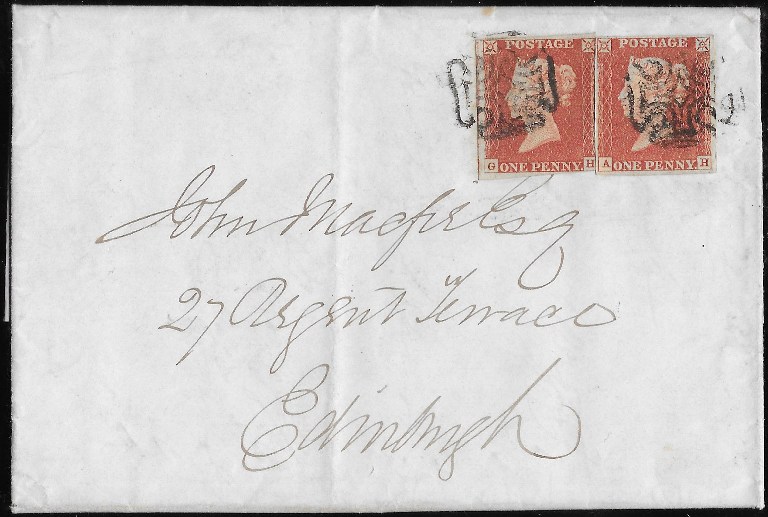 POSTAGE POSTAGE
G ONE PENNY H A ONE PENNY H
John Macfie Esq
27 Regent Terrace
Edinburgh